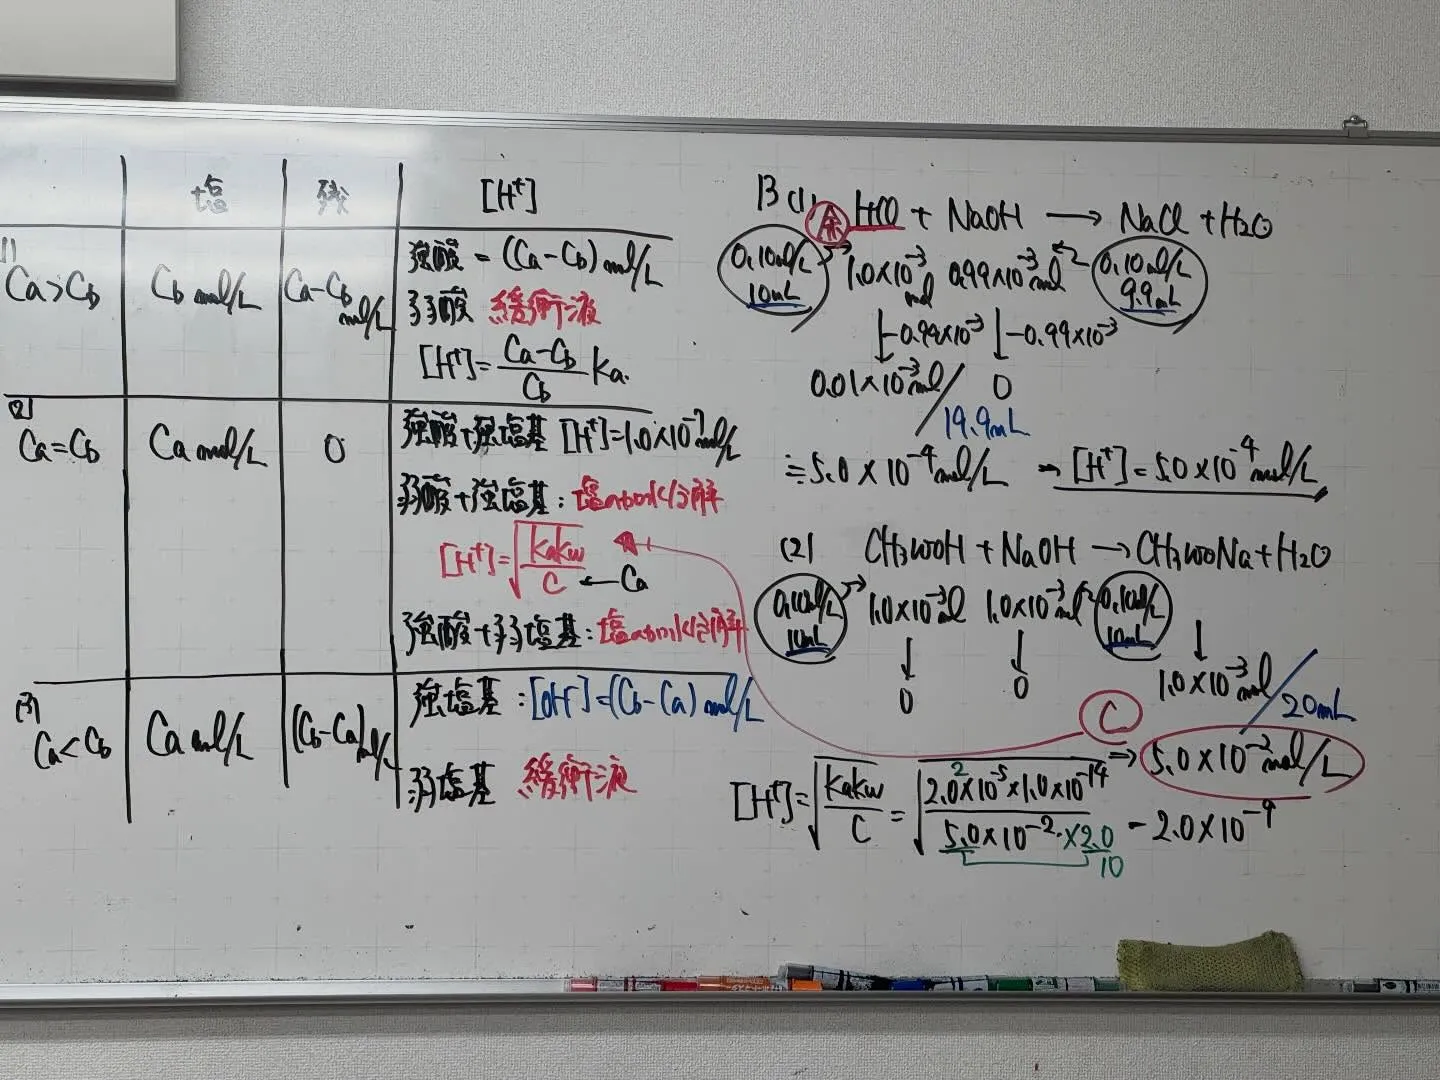 塩 残 [H⁺]
(1) Ca>Cb Cb mol/L Ca-Cb mol/L
強酸 = (Ca-Cb) mol/L
弱酸 緩衝液
[H⁺]= Ca-Cb/Cb Ka.
(2) Ca=Cb Ca mol/L 0
強酸+強塩基 [H⁺]=1.0×10⁻⁷mol/L
弱酸+強塩基:塩の加水分解
[H⁺]=√KaKw/C ← Ca
強酸+弱塩基:塩の加水分解
(3) Ca<Cb Ca mol/L (Cb-Ca)mol/L
強塩基:[OH⁻]=(Cb-Ca) mol/L
弱塩基 緩衝液
13 (1) 余 HCl + NaOH → NaCl + H₂O
0.10mol/L 10mL 1.0×10⁻³mol 0.99×10⁻³mol 0.10mol/L 9.9mL
↓-0.99×10⁻³ ↓-0.99×10⁻³
0.01×10⁻³mol/19.9mL 0
≒5.0×10⁻⁴mol/L → [H⁺]=5.0×10⁻⁴mol/L
(2) CH₃COOH + NaOH → CH₃COONa + H₂O
0.10mol/L 10mL 1.0×10⁻³mol 1.0×10⁻³mol 0.10mol/L 10mL
↓ ↓ ↓
0 0 1.0×10⁻³mol/20mL
C ⇒ 5.0×10⁻²mol/L
[H⁺]=√KaKw/C = √2.0²×10⁻⁵×1.0×10⁻¹⁴/5.0×10⁻²・×2.0 = 2.0×10⁻⁹
10